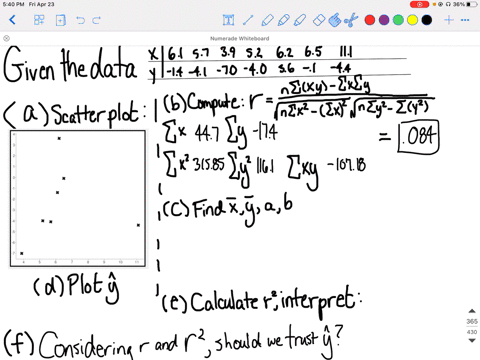 5:40 PM Fri Apr 23
36%
Numerade Whiteboard
Given the data
x 6.1 5.7 3.9 5.2 6.2 6.5 11.1
y -1.4 -4.1 -7.0 -4.0 3.6 -.1 -4.4
(a) Scatterplot:
(b) Compute: r = nΣ(xy) - ΣxΣy / √nΣx² - (Σx)² √nΣy² - Σ(y²)
= .084
Σx 44.7 Σy -17.4
Σx² 315.85 Σy² 116.1 Σxy -107.18
(c) Find x̄, ȳ, a, b
(d) Plot ŷ
(e) Calculate r², interpret:
(f) Considering r and r², should we trust ŷ?
365
430